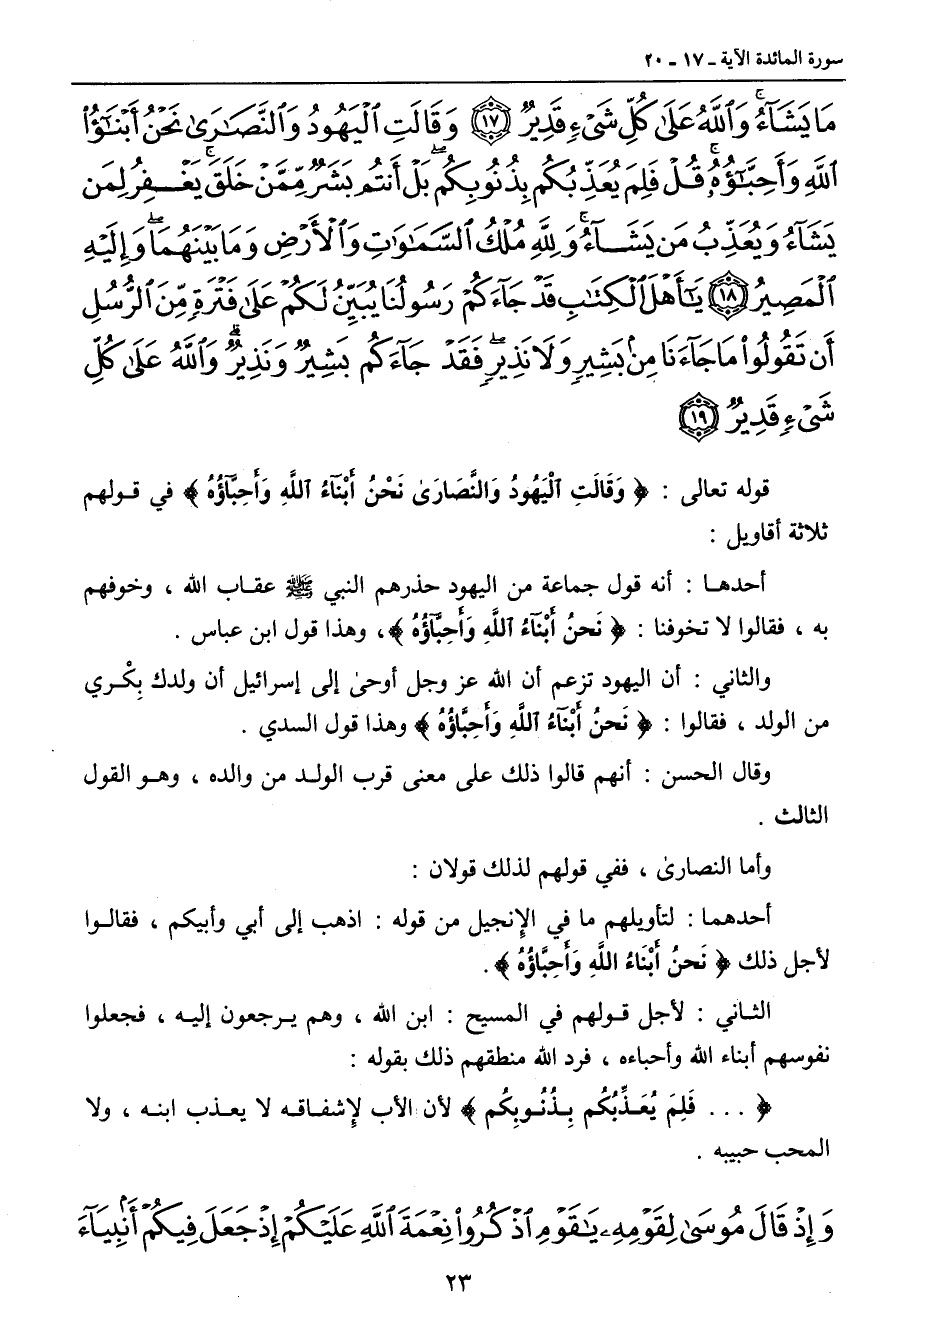 سورة المائدة الآية ـ ١٧ ـ ٢٠
مَا يَشَآءُ ۚ وَٱللَّهُ عَلَىٰ كُلِّ شَىْءٍ قَدِيرٌ ١٧ وَقَالَتِ ٱلْيَهُودُ وَٱلنَّصَـٰرَىٰ نَحْنُ أَبْنَـٰٓؤُا۟
ٱللَّهِ وَأَحِبَّـٰٓؤُهُۥ ۚ قُلْ فَلِمَ يُعَذِّبُكُم بِذُنُوبِكُم ۖ بَلْ أَنتُم بَشَرٌ مِّمَّنْ خَلَقَ ۚ يَغْفِرُ لِمَن
يَشَآءُ وَيُعَذِّبُ مَن يَشَآءُ ۚ وَلِلَّهِ مُلْكُ ٱلسَّمَـٰوَٰتِ وَٱلْأَرْضِ وَمَا بَيْنَهُمَا ۖ وَإِلَيْهِ
ٱلْمَصِيرُ ١٨ يَـٰٓأَهْلَ ٱلْكِتَـٰبِ قَدْ جَآءَكُمْ رَسُولُنَا يُبَيِّنُ لَكُمْ عَلَىٰ فَتْرَةٍ مِّنَ ٱلرُّسُلِ
أَن تَقُولُوا۟ مَا جَآءَنَا مِنۢ بَشِيرٍ وَلَا نَذِيرٍ ۖ فَقَدْ جَآءَكُم بَشِيرٌ وَنَذِيرٌ ۗ وَٱللَّهُ عَلَىٰ كُلِّ
شَىْءٍ قَدِيرٌ ١٩
قوله تعالى : ﴿ وَقَالَتِ ٱلْيَهُودُ وَالنَّصَارَىٰ نَحْنُ أَبْنَآءُ ٱللَّهِ وَأَحِبَّآؤُهُ ﴾ في قولهم
ثلاثة أقاويل :
أحدها : أنه قول جماعة من اليهود حذرهم النبي ﷺ عقاب الله ، وخوفهم
به ، فقالوا لا تخوفنا : ﴿ نَحنُ أَبْنَآءُ ٱللَّهِ وَأَحِبَّآؤُهُ ﴾ ، وهذا قول ابن عباس .
والثاني : أن اليهود تزعم أن الله عز وجل أوحىٰ إلى إسرائيل أن ولدك بِكْري
من الولد ، فقالوا : ﴿ نَحنُ أَبْنَآءُ ٱللَّهِ وَأَحِبَّاؤُهُ ﴾ وهذا قول السدي .
وقال الحسن : أنهم قالوا ذلك على معنى قرب الولد من والده ، وهو القول
الثالث .
وأما النصارىٰ ، ففي قولهم لذلك قولان :
أحدهما : لتأويلهم ما في الإنجيل من قوله : اذهب إلى أبي وأبيكم ، فقالوا
لأجل ذلك ﴿ نَحنُ أَبْنَاءُ اللَّهِ وَأَحِبَّاؤُهُ ﴾ .
الثاني : لأجل قولهم في المسيح : ابن الله ، وهم يرجعون إليه ، فجعلوا
نفوسهم أبناء الله وأحباءه ، فرد الله منطقهم ذلك بقوله :
﴿ ... فَلِمَ يُعَذِّبُكُم بِذُنُوبِكُم ﴾ لأن الأب لإشفاقه لا يعذب ابنه ، ولا
المحب حبيبه .
وَإِذْ قَالَ مُوسَىٰ لِقَوْمِهِۦ يَـٰقَوْمِ ٱذْكُرُوا۟ نِعْمَةَ ٱللَّهِ عَلَيْكُمْ إِذْ جَعَلَ فِيكُمْ أَنۢبِيَآءَ
٢٣